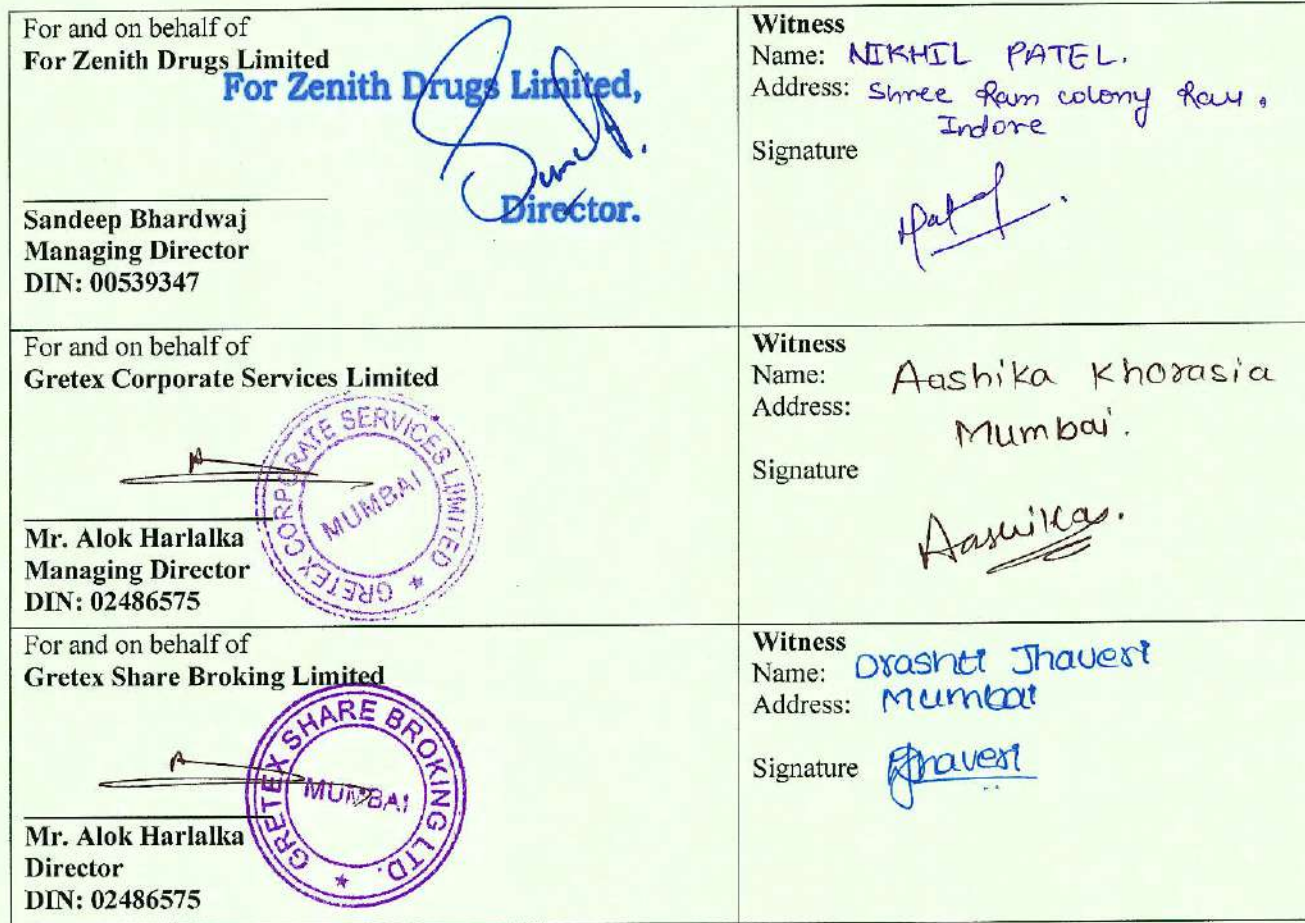 For and on behalf of
For Zenith Drugs Limited
For Zenith Drugs Limited,
Director.
Sandeep Bhardwaj
Managing Director
DIN: 00539347
Witness
Name: NIKHIL PATEL.
Address: Shree Ram colony Rau.
Indore
Signature
Patel
For and on behalf of
Gretex Corporate Services Limited
GRETEX CORPORATE SERVICES LIMITED *
MUMBAI
Mr. Alok Harlalka
Managing Director
DIN: 02486575
Witness
Name: Aashika Khorasia
Address: Mumbai.
Signature
Aashika.
For and on behalf of
Gretex Share Broking Limited
GRETEX SHARE BROKING LTD. *
MUMBAI
Mr. Alok Harlalka
Director
DIN: 02486575
Witness
Name: Drashti Jhaveri
Address: Mumbai
Signature Jhaveri